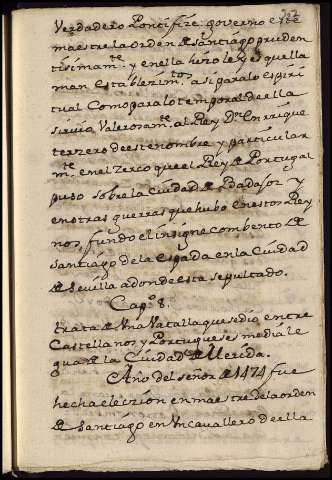 Verdadero Pontifize. governo este
maestre la orden de Santiago prudren
tisimamte. y en ella hizo leyes que lla
man establezimtos. asi para lo espiri
tual Como para lo temporal de ella
sirvio Valerosamte. al Rey Dn. Enrrique
terzero de este nombre y particular
mte. en el Zerco que el Rey de Portugal
puso sobre la Ciudad de Badajoz y
en otras guerras que hubo en estos Rey
nos, fundo el insigne combento de
Santiago de la Espada en la Ciudad
de Sevilla adonde esta sepultado.
Capo. 8.
trata de Una Vatalla que se dio entre
Castellanos y Portugueses media le
gua de la Ciudad de Merida.
Año del señor de 1474 fue
hecha eleczion en maestre de la orden
de Santiago en Un cavallero de ella